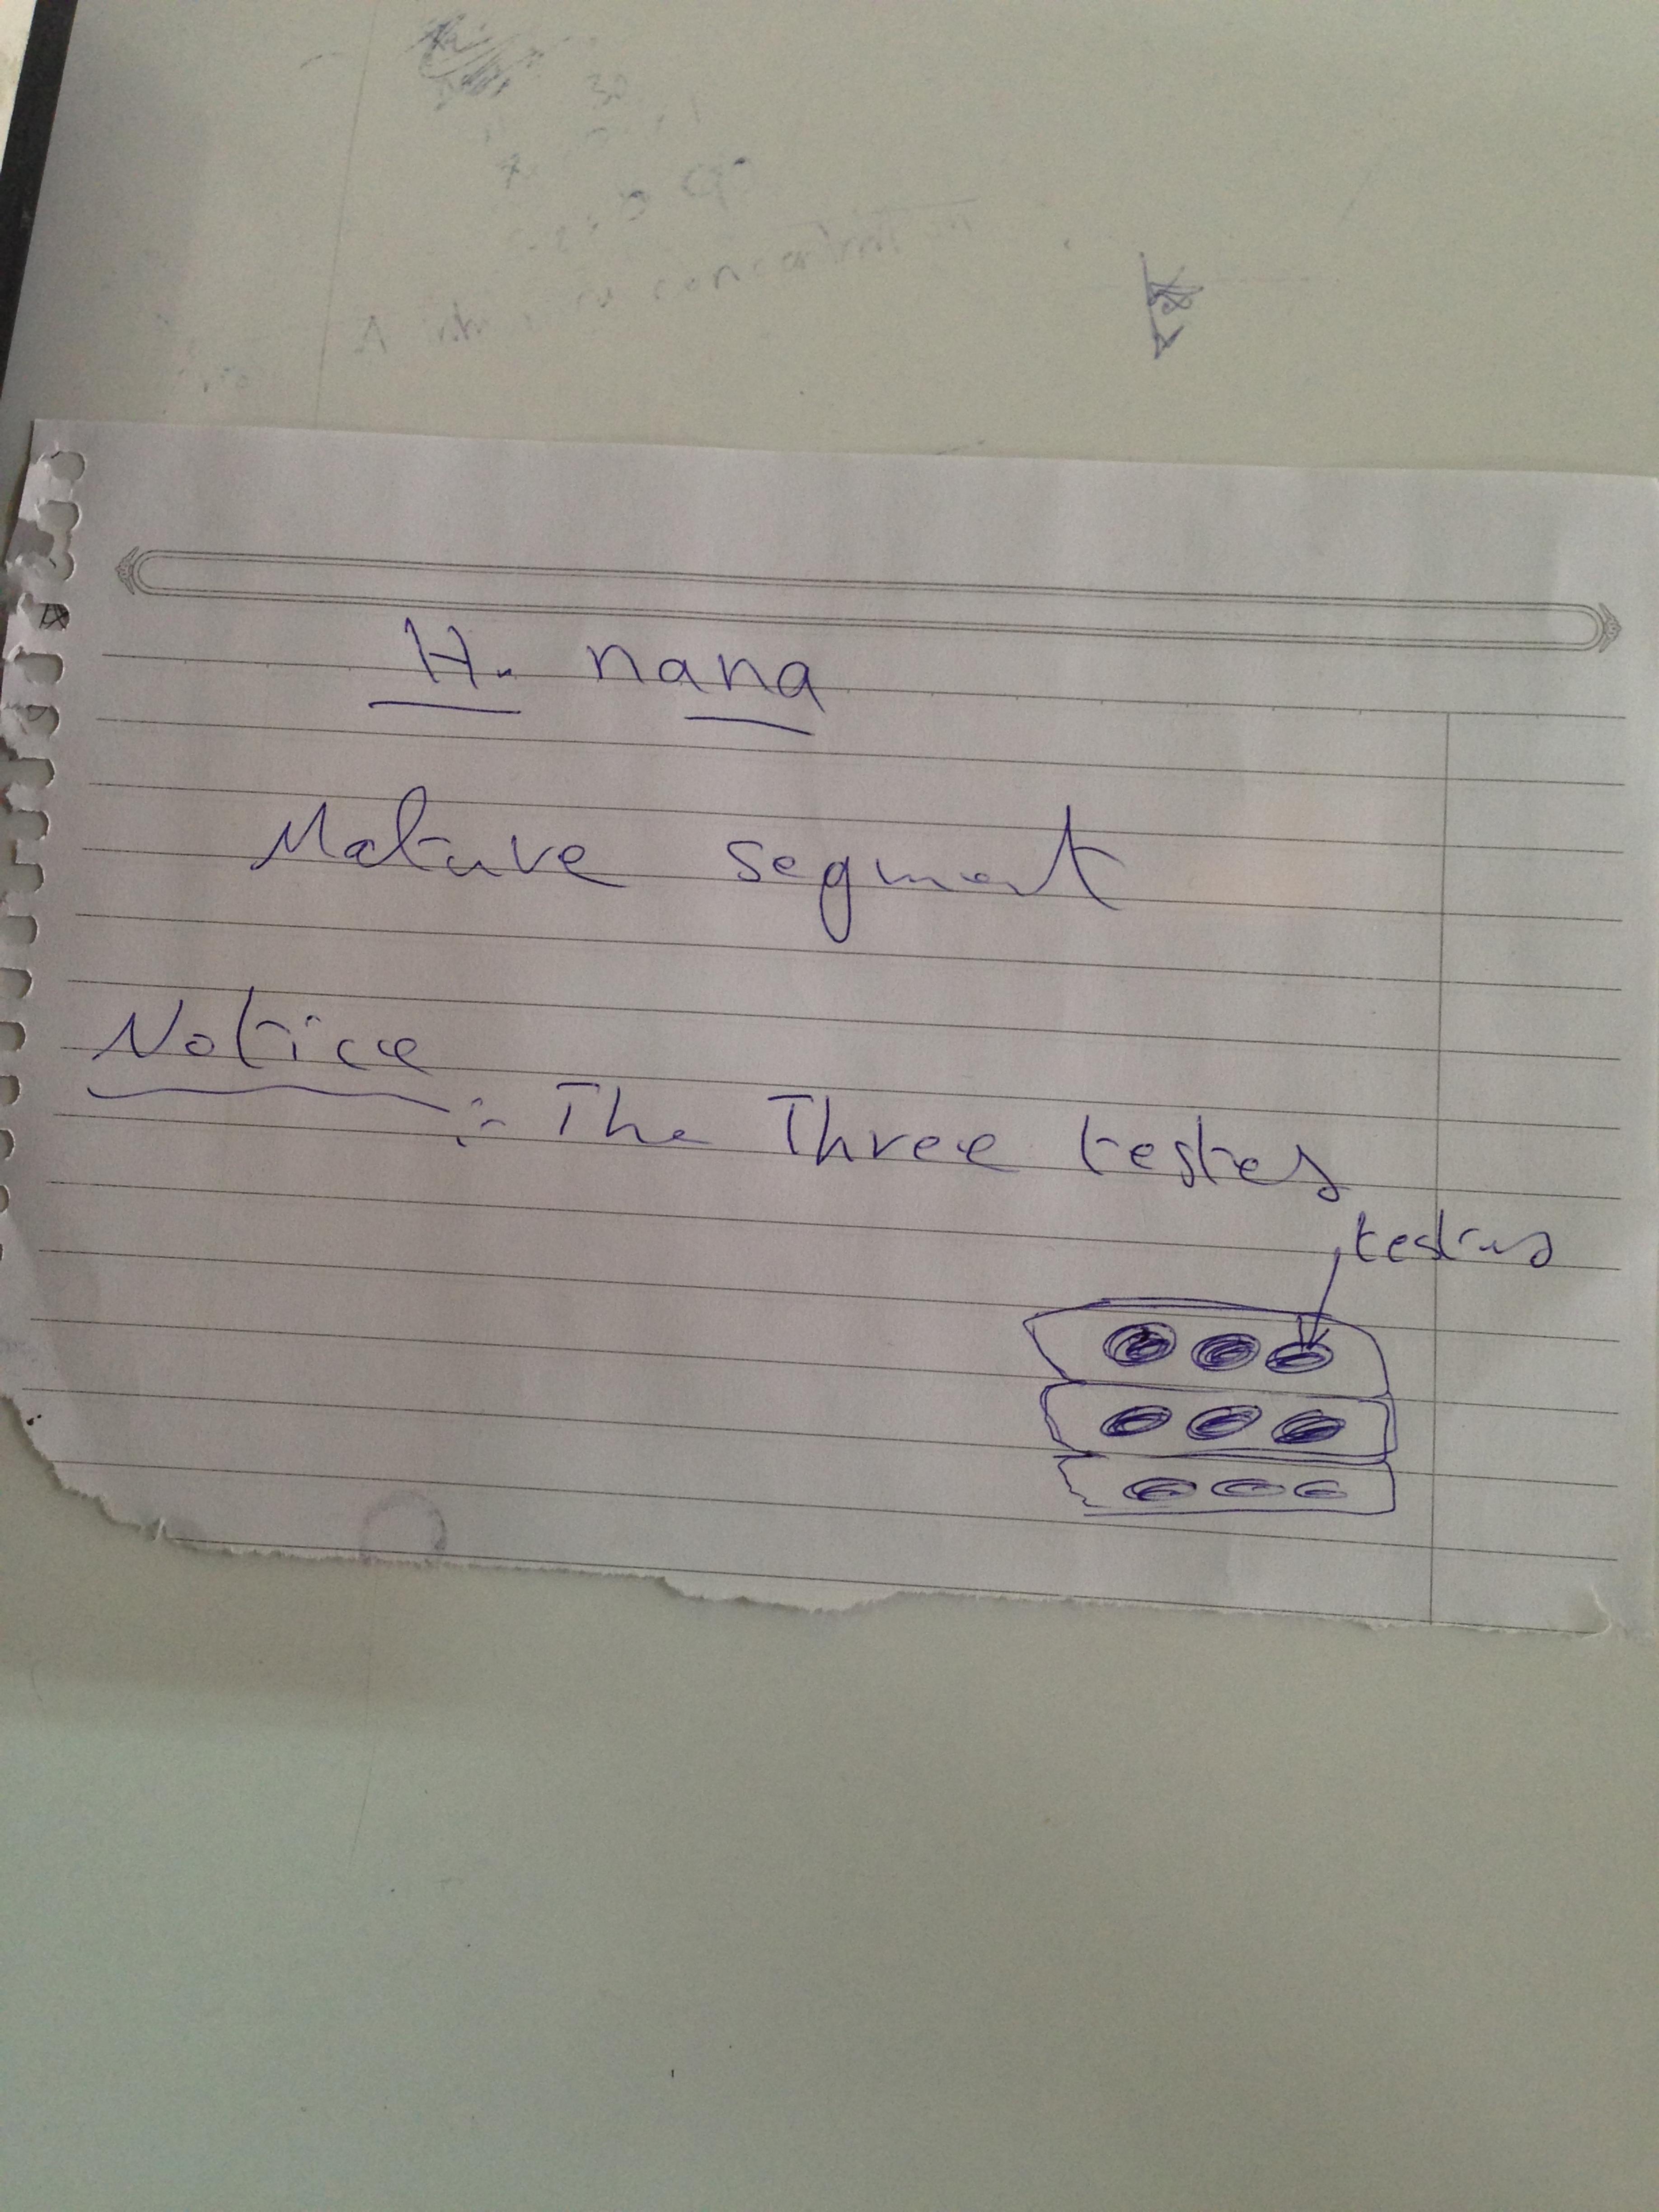 H. nana
Mature segment
Notice
:- The Three testes
testes